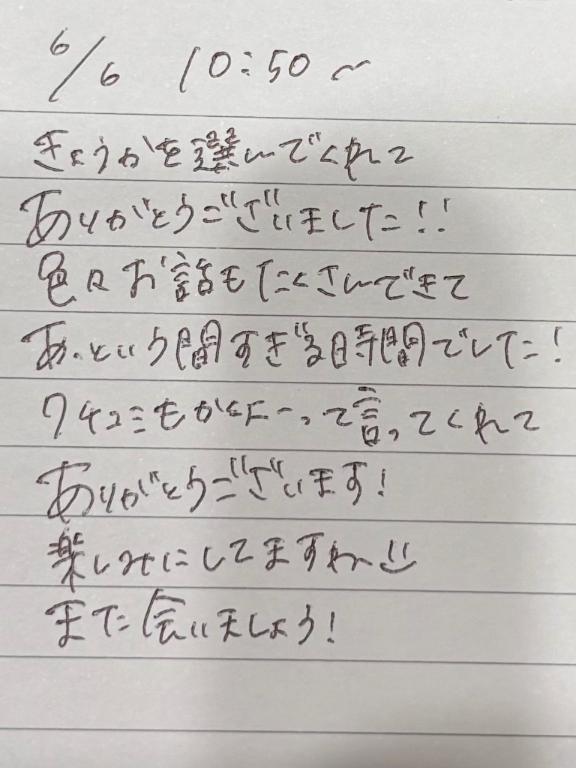 6/6 10:50〜
きょうかを選んでくれて
ありがとうございました!!
色々お話もたくさんできて
あっという間すぎる時間でした!
クチコミもかくよーって言ってくれて
ありがとうございます!
楽しみにしてますね
また会いましょう!